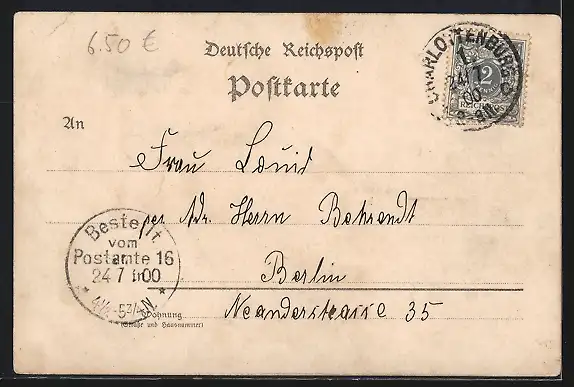 6.50 €
Deutsche Reichspost
Postkarte
CHARLOTTENBURG
1
24/7
00
2
An
Frau Louid
per Adr. Herrn Behrendt
Berlin
Neanderstrasse 35
Bestellt
vom
Postamte 16
24 7 00
Wohnung
(Straße und Hausnummer)